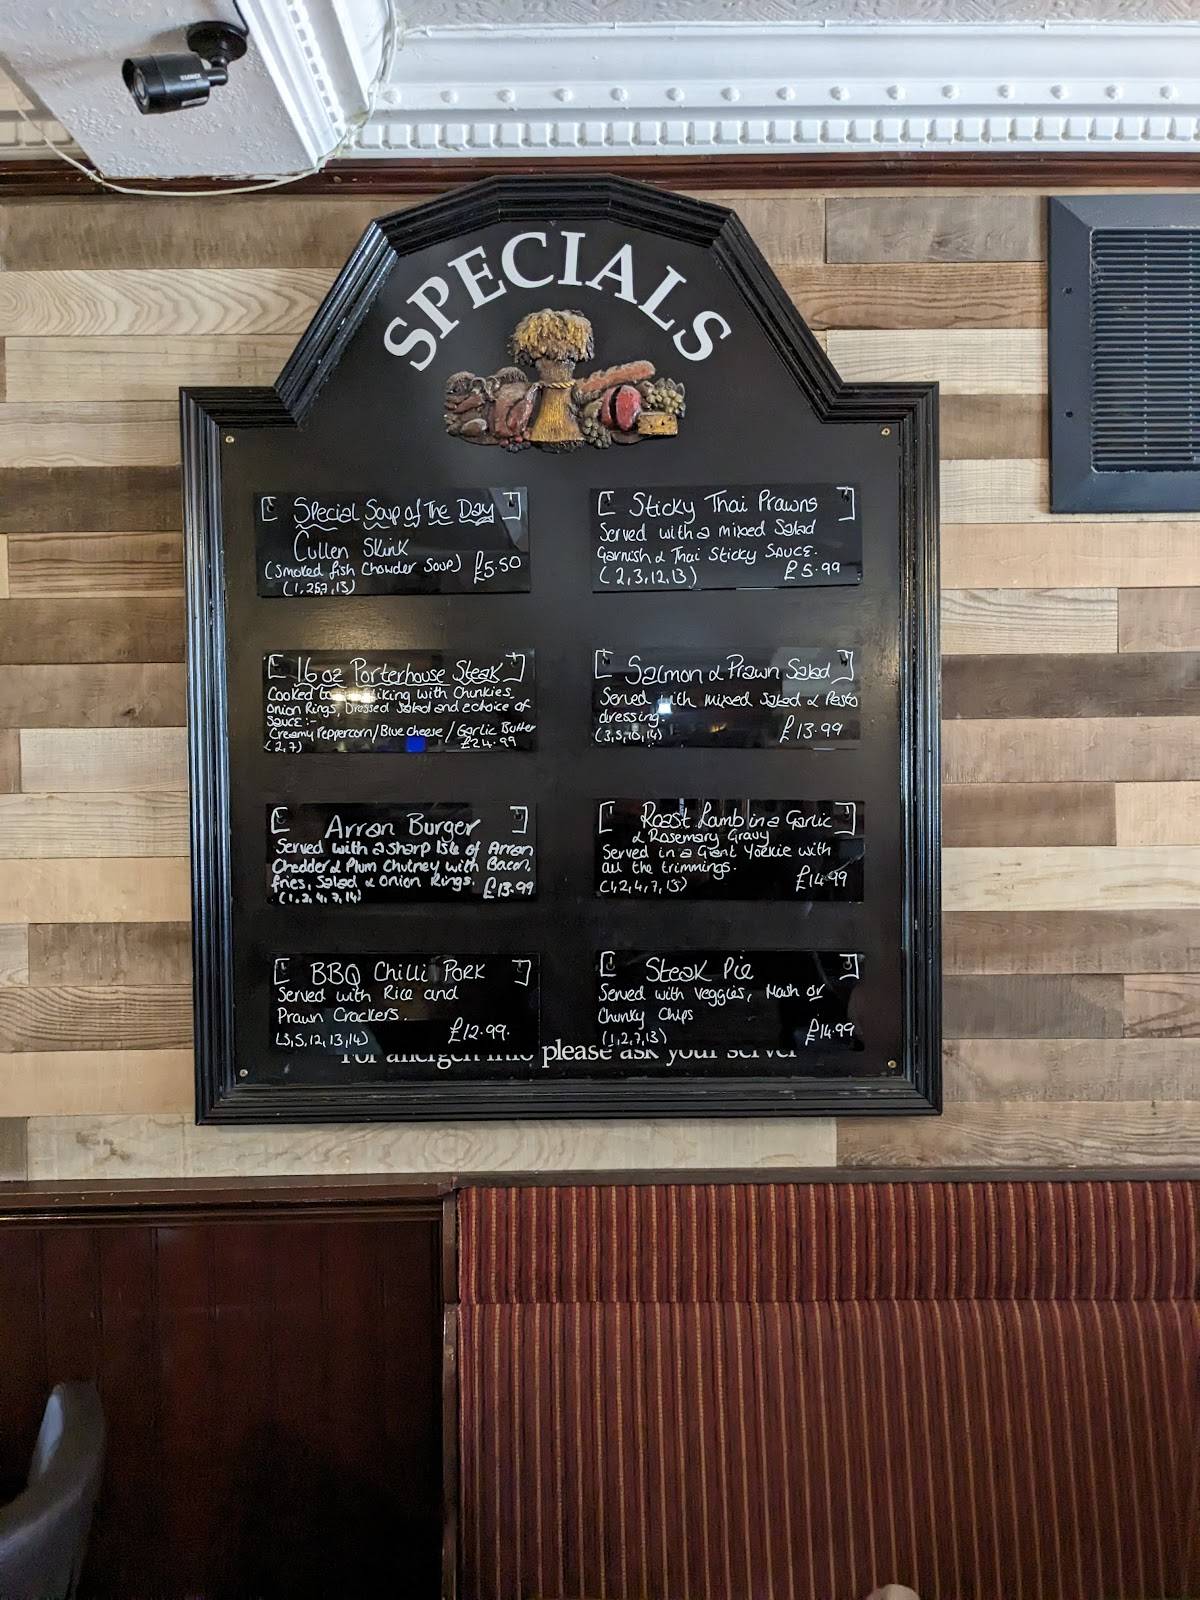 SPECIALS
Special Soup of The Day
Cullen Skink
(Smoked fish Chowder Soup) £5.50
Sticky Thai Prawns
Served with a mixed Salad
Garnish & Thai Sticky Sauce.
(2,3,12,13) £5.99
16 oz Porterhouse Steak
Cooked to liking with Chunkies,
Onion Rings, Dressed Salad and a choice of
Sauce:-
Creamy Peppercorn/Blue cheese/Garlic Butter
(2,7) £24.99
Salmon & Prawn Salad
Served with mixed Salad & Pesto
dressing.
(3,5,10,14) £13.99
Arran Burger
Served with a sharp Isle of Arran
Chedder & Plum Chutney with Bacon,
fries, Salad & Onion Rings. £13.99
(1,2,4,7,14)
Roast Lamb in a Garlic
& Rosemary Gravy
Served in a Giant Yorkie with
all the trimmings.
(1,2,4,7,13) £14.99
BBQ Chilli Pork
Served with Rice and
Prawn Crackers.
(3,5,12,13,14) £12.99.
Steak Pie
Served with Veggies, Mash or
Chunky Chips
(1,2,7,13) £14.99
For allergen info please ask your server